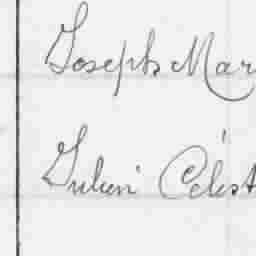 Joseph Mar
Julien Célest